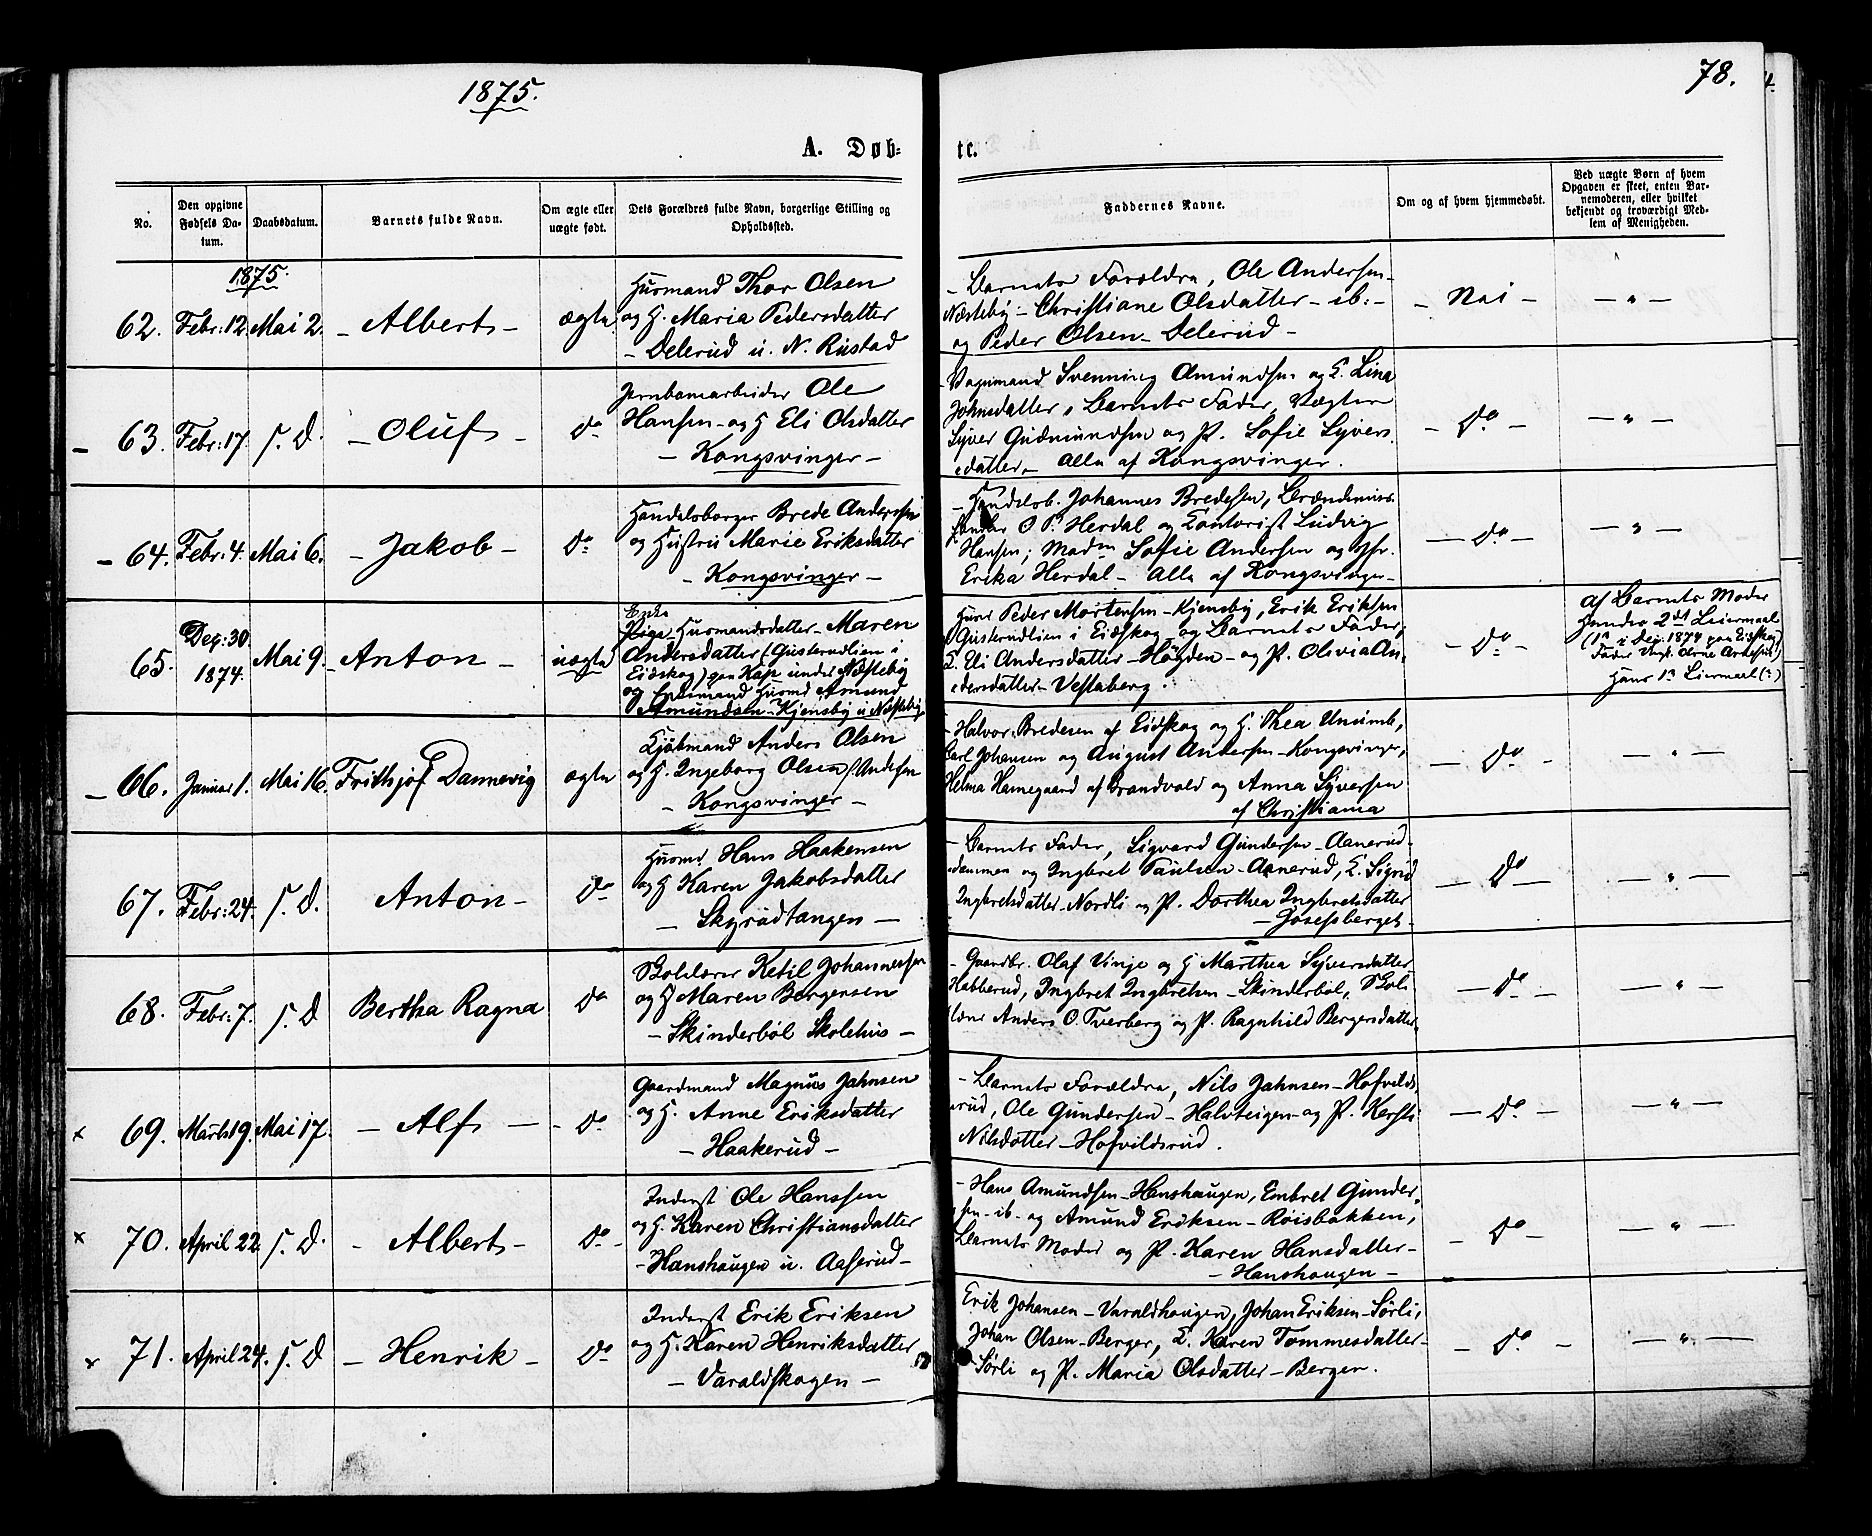 1875.
78.
A. Døb-
te.
No.
Den opgivne Fødsels Datum.
Daabsdatum.
Barnets fulde Navn.
Om ægte eller uægte født.
Dets Forældres fulde Navn, borgerlige Stilling og Opholdssted.
Faddernes Navne.
Om og af hvem hjemmedøbt.
Ved uægte Børn af hvem Opgaven er skeet, enten Barnemoderen, eller hvilket bekjendt og troværdigt Medlem af Menigheden.
1875.
62. Febr: 12. Mai 2. - Albert - ægte
Husmand Thor Olsen
og H. Maria Pedersdatter
- Delerud u. N. Rustad
- Barnets Forældre, Ole Andersen -
Næsteby - Christiane Olsdatter - ib: -
og Peder Olsen - Delerud -
- Nei -
- " -
- 63. Febr: 17. s. D. - Oluf - do
Jernbanearbeider Ole
Hansen - og H Eli Olsdatter
- Kongsvinger -
Svenning Amundsen og K. Lina
Johnsdatter, Barnets Fader, Vægter
Syver Gudmundsen og P. Sofie Syvers
datter - Alle af Kongsvinger.
- do -
- " -
- 64. Febr: 4. Mai 6. - Jakob - do
Handelsborger Brede Andersen
og Hustru Marie Eriksdatter
- Kongsvinger -
- Handelsb. Johannes Bredesen, Brændevins
O. P. Herdal og Contorist Ludvig
Hansen; Madm Sofie Andersen og Jfr.
Erika Herdal - Alle af Kongsvinger -
- do -
- " -
65. Dec: 30. 1874. Mai 9. - Anton - uægte
Enke
Pige Husmandsdatter - Maren
Andersdatter (Gusterudlien i
Eidskog) paa Kap under Næsteby
og Husmd Amund
Amundsen - Kjensby u Næsteby
Peder Mortensen - Kjensby, Erik Eriksen
Gusterudlien i Eidskog og Barnets Fader,
K. Eli Andersdatter - Høgden - og P. Olivia An-
dersdatter - Vestaberg.
- do -
Af Barnets Moder
hendes 2det Leiermaal
(1ste i Dec: 1874 paa Eidskog
Fader Ungk. Arne Arnesen)
Hans 1ste Leiermaal (:)
- 66. Januar 1. Mai 16. Frithjof Dannevig ægte
Kjøbmand Anders Olsen
og H. Ingeborg Olsen f. Andersen
- Kongsvinger -
- Halvor Bredesen af Eidskog og H. Thea Unumb,
Carl Johansen og August Andersen - Kongsvinger,
Helma Hamegaard af Brandvold og Anna Syversen
af Christiania
- do -
- " -
67. Febr: 24. s. D. Anton - do
Husmd Hans Haakensen
og H Karen Jakobsdatter
- Skyrudtangen -
- Barnets Fader, Sigvard Gundersen - Aanerud-
dammen og Ingbret Paulsen - Aanerud, K. Sigrid
Ingbretsdatter - Nordli og P. Dorthea Ingbretsdatter
- Josefsberget -
- do -
- " -
68. Febr: 7. s. D Bertha Ragna do
Skolelærer Ketil Johannessen
og H Maren Bergersen
- Skinderbøl Skolehus -
- Gaardbr. Olaf Vinje og H Marthea Syversdatter
Habberud, Ingbret Ingbretsen - Skinderbøl, Skol-
lærer Anders O. Tverberg og P. Ragnhild Bergersdatter
- do -
- " -
x 69. Marts 19. Mai 17. - Alf - - do
Gaardmand Magnus Jahnsen
og H. Anne Eriksdatter
- Haakerud -
- Barnets Forældre, Nils Jahnsen - Hofvilds
rud, Ole Gundersen - Halvteigen - og P. Kersti
Nilsdatter - Hofvildsrud.
- do -
- " -
x 70. April 22. s. D. - Albert - do -
Inderst Ole Hanssen
og H. Karen Christiansdatter
- Hanshaugen u. Aaserud -
- Hans Amundsen - Hanshaugen, Embret Gunder-
sen - ib - og Amund Eriksen - Røisbakken,
Barnets Moder og P. Karen Hansdatter -
- Hanshaugen -
- do -
- " -
x 71. April 24. s. D - Henrik - do
Inderst Erik Eriksen
og H. Karen Henriksdatter
- Varaldskogen -
Erik Johansen - Varaldhaugen, Johan Eriksen - Sørli,
Johan Olsen - Berger, K. Karen Tommesdatter -
Sørli og P. Maria Olsdatter - Bergen.
- do -
- " -